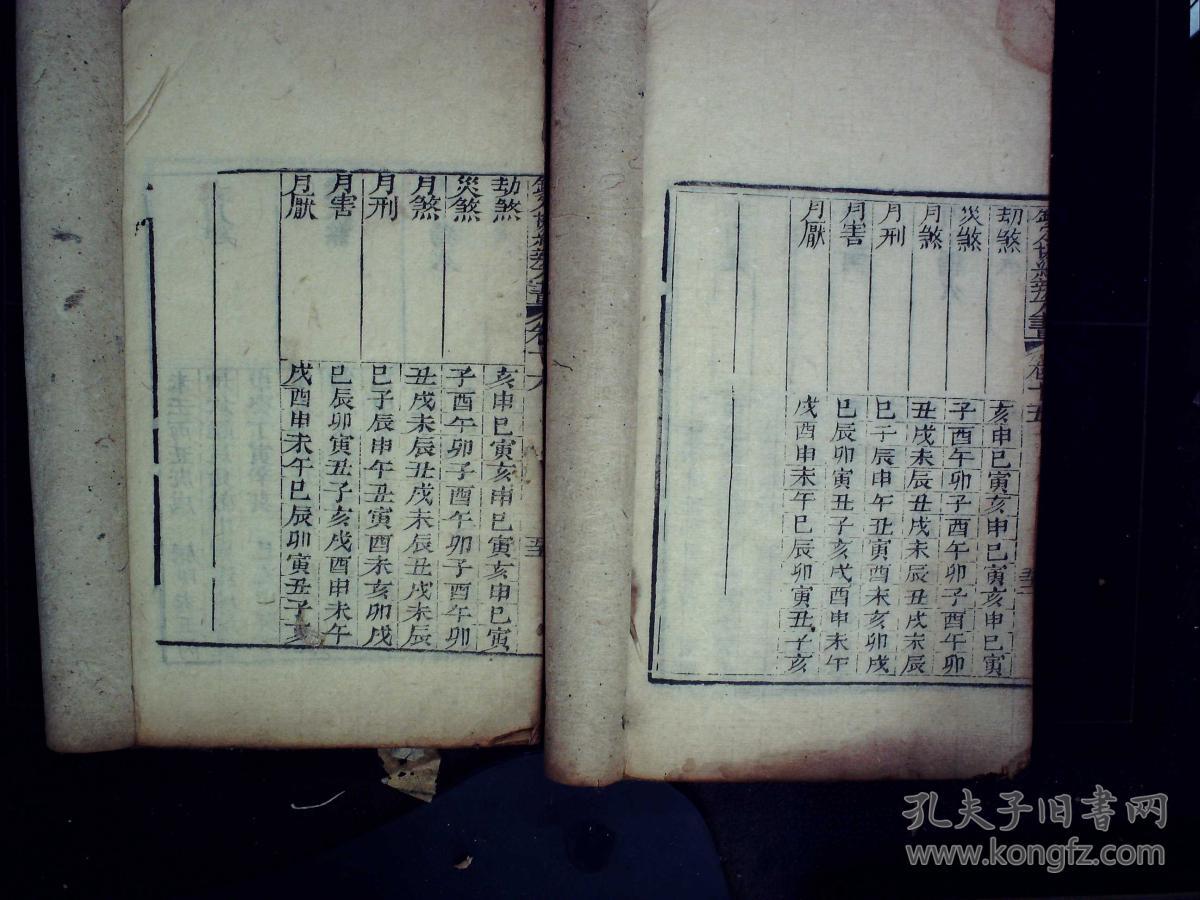 欽定協紀辨方書 卷十五
劫煞 亥申巳寅亥申巳寅亥申巳寅
災煞 子酉午卯子酉午卯子酉午卯
月煞 丑戌未辰丑戌未辰丑戌未辰
月刑 巳子辰申午丑寅酉未亥卯戌
月害 巳辰卯寅丑子亥戌酉申未午
月厭 戌酉申未午巳辰卯寅丑子亥
欽定協紀辨方書 卷十六
劫煞 亥申巳寅亥申巳寅亥申巳寅
災煞 子酉午卯子酉午卯子酉午卯
月煞 丑戌未辰丑戌未辰丑戌未辰
月刑 巳子辰申午丑寅酉未亥卯戌
月害 巳辰卯寅丑子亥戌酉申未午
月厭 戌酉申未午巳辰卯寅丑子亥
孔夫子旧书网
www.kongfz.com